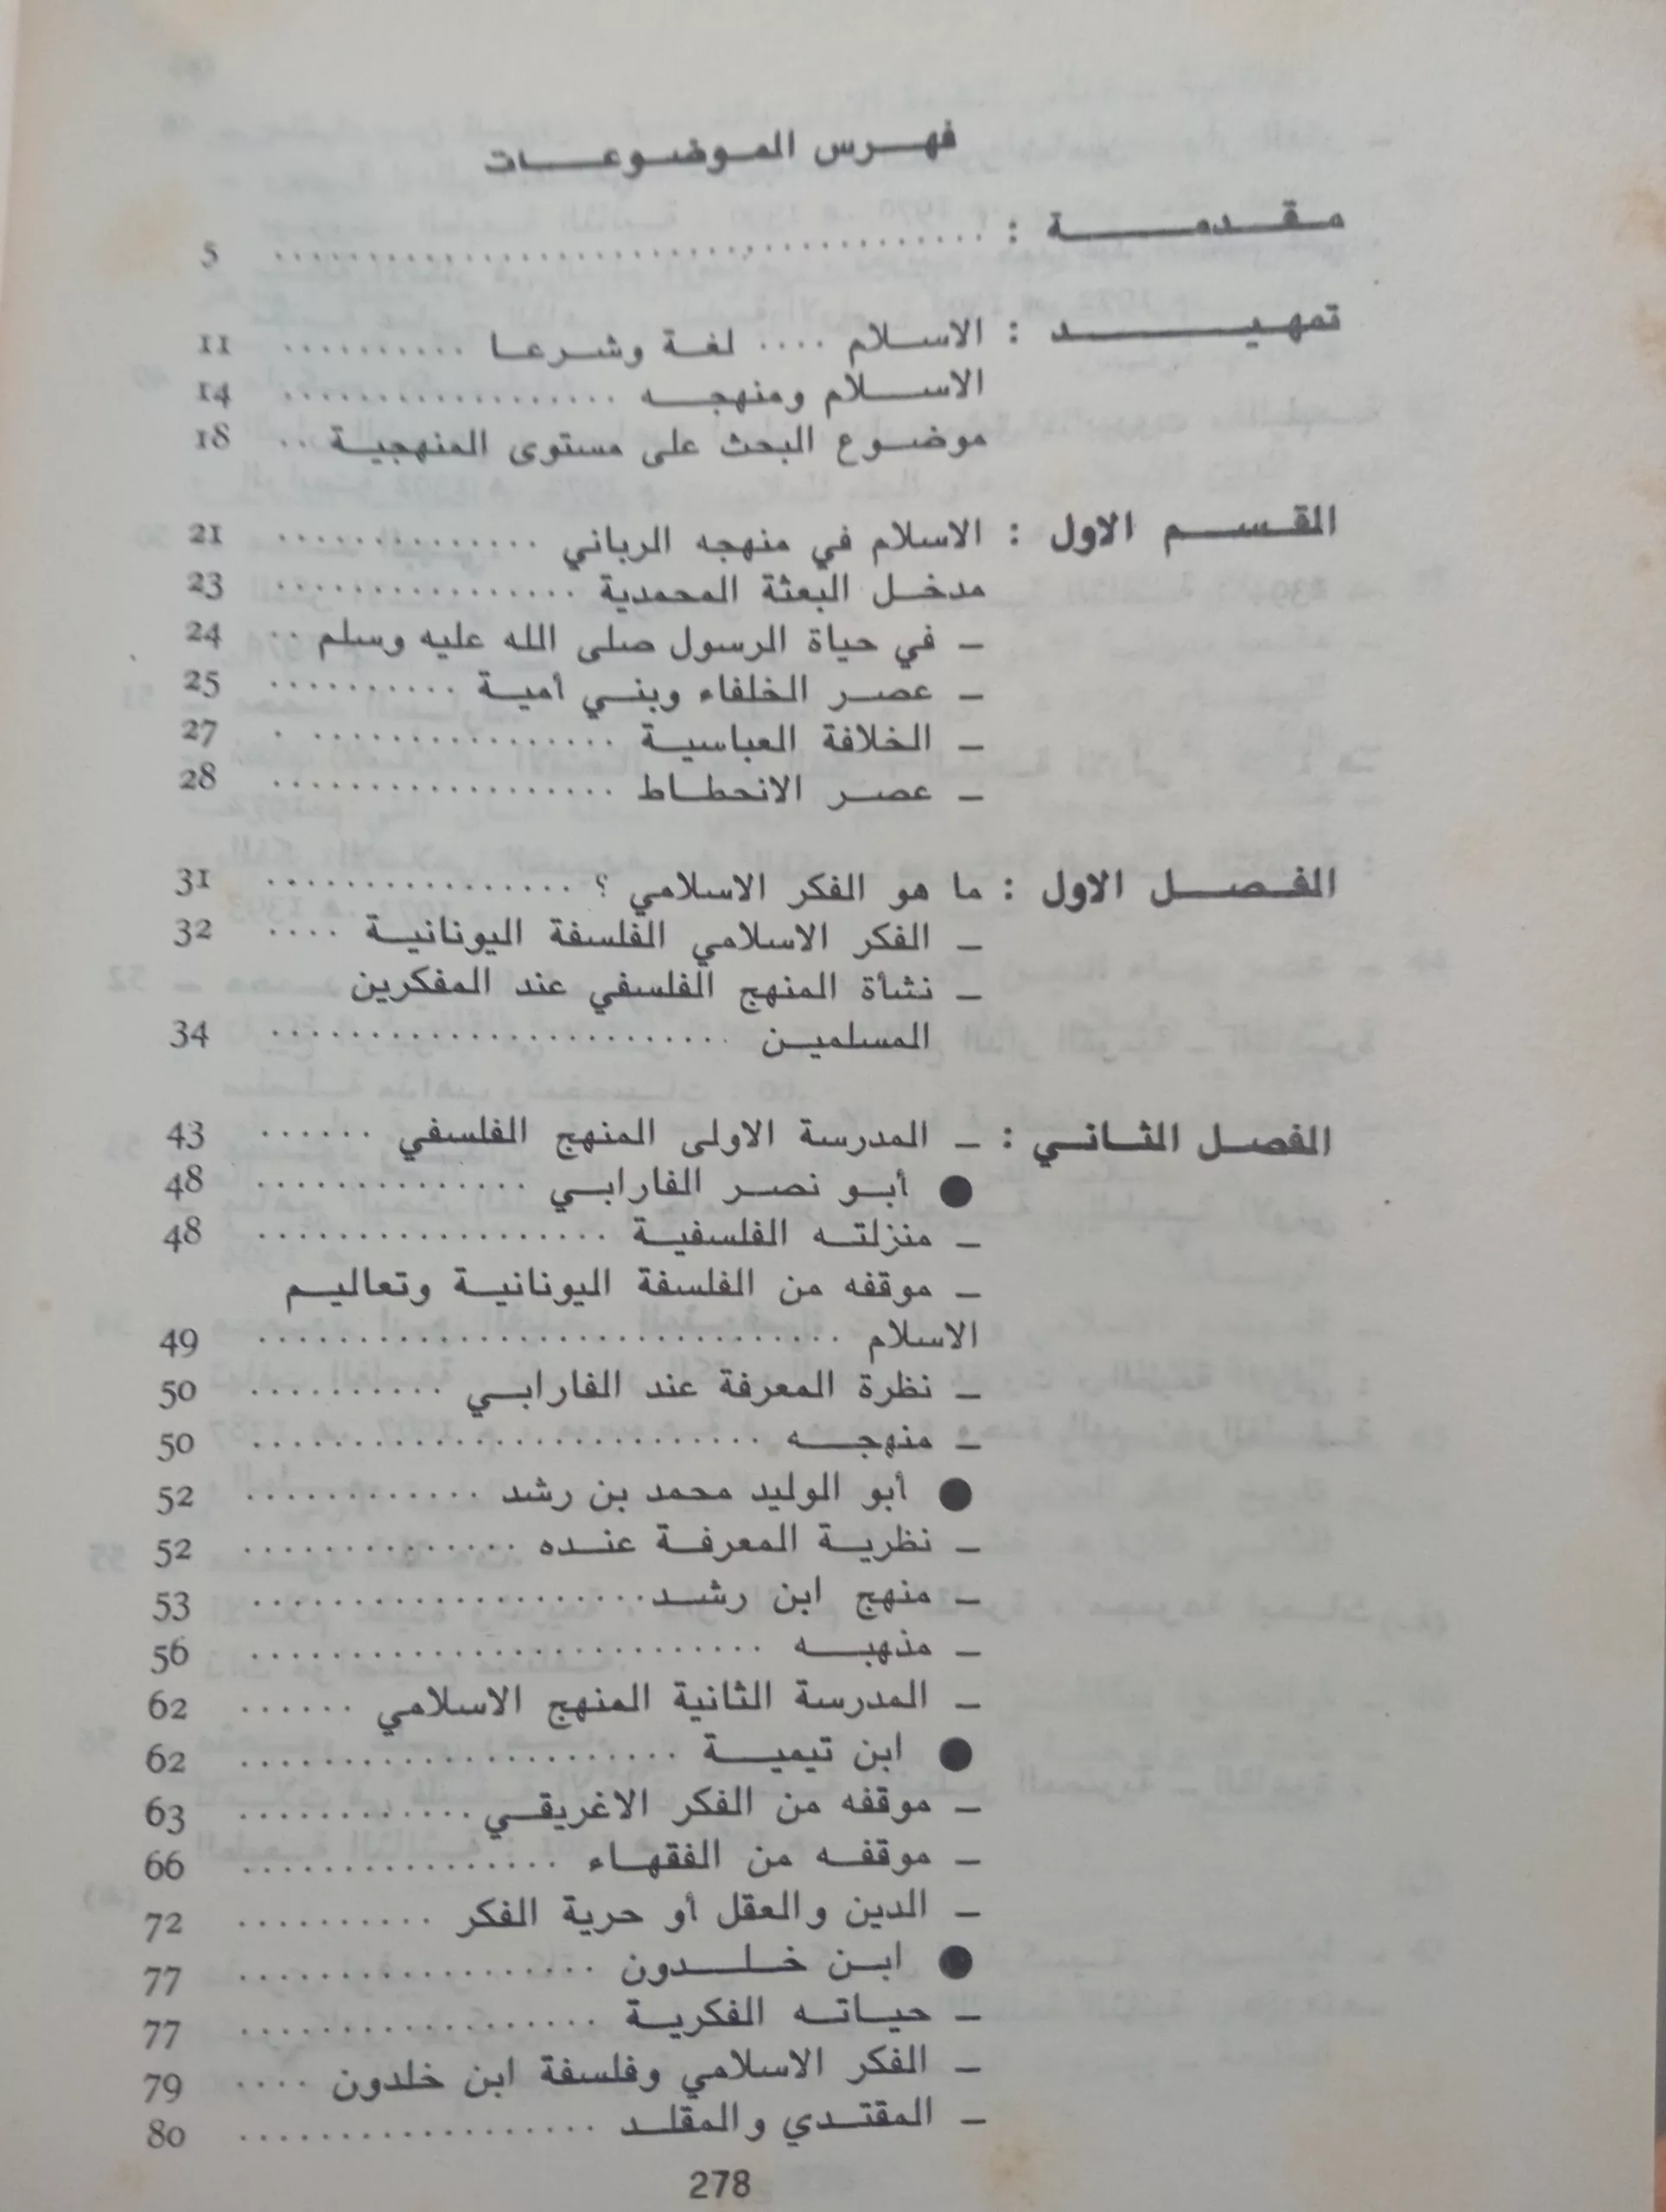 فهرس الموضوعات
مقدمة : ........................................ 5
تمهيد : الاسلام .... لغة وشرعا .......... 11
الاسلام ومنهجه .................. 14
موضوع البحث على مستوى المنهجية .. 18
القسم الاول : الاسلام في منهجه الرباني .............. 21
مدخل البعثة المحمدية ................ 23
– في حياة الرسول صلى الله عليه وسلم .. 24
– عصر الخلفاء وبني أمية .......... 25
– الخلافة العباسية ................ . 27
– عصر الانحطاط .................. 28
الفصل الاول : ما هو الفكر الاسلامي ؟ ................ 31
– الفكر الاسلامي الفلسفة اليونانية .... 32
– نشأة المنهج الفلسفي عند المفكرين
المسلمين ........................ 34
الفصل الثاني : – المدرسة الاولى المنهج الفلسفي ...... 43
● أبو نصر الفارابي .............. 48
– منزلته الفلسفية .................. 48
– موقفه من الفلسفة اليونانية وتعاليم
الاسلام .............................. 49
– نظرة المعرفة عند الفارابي .......... 50
– منهجه .......................... 50
● أبو الوليد محمد بن رشد ............ 52
– نظرية المعرفة عنده .............. 52
– منهج ابن رشد.................... 53
– مذهبه .......................... 56
– المدرسة الثانية المنهج الاسلامي ...... 62
● ابن تيمية ...................... 62
– موقفه من الفكر الاغريقي............ 63
– موقفه من الفقهاء ................ 66
– الدين والعقل أو حرية الفكر .......... 72
● ابن خلدون .................. 77
– حياته الفكرية .................. 77
– الفكر الاسلامي وفلسفة ابن خلدون .... 79
– المقتدي والمقلد .................. 80
278